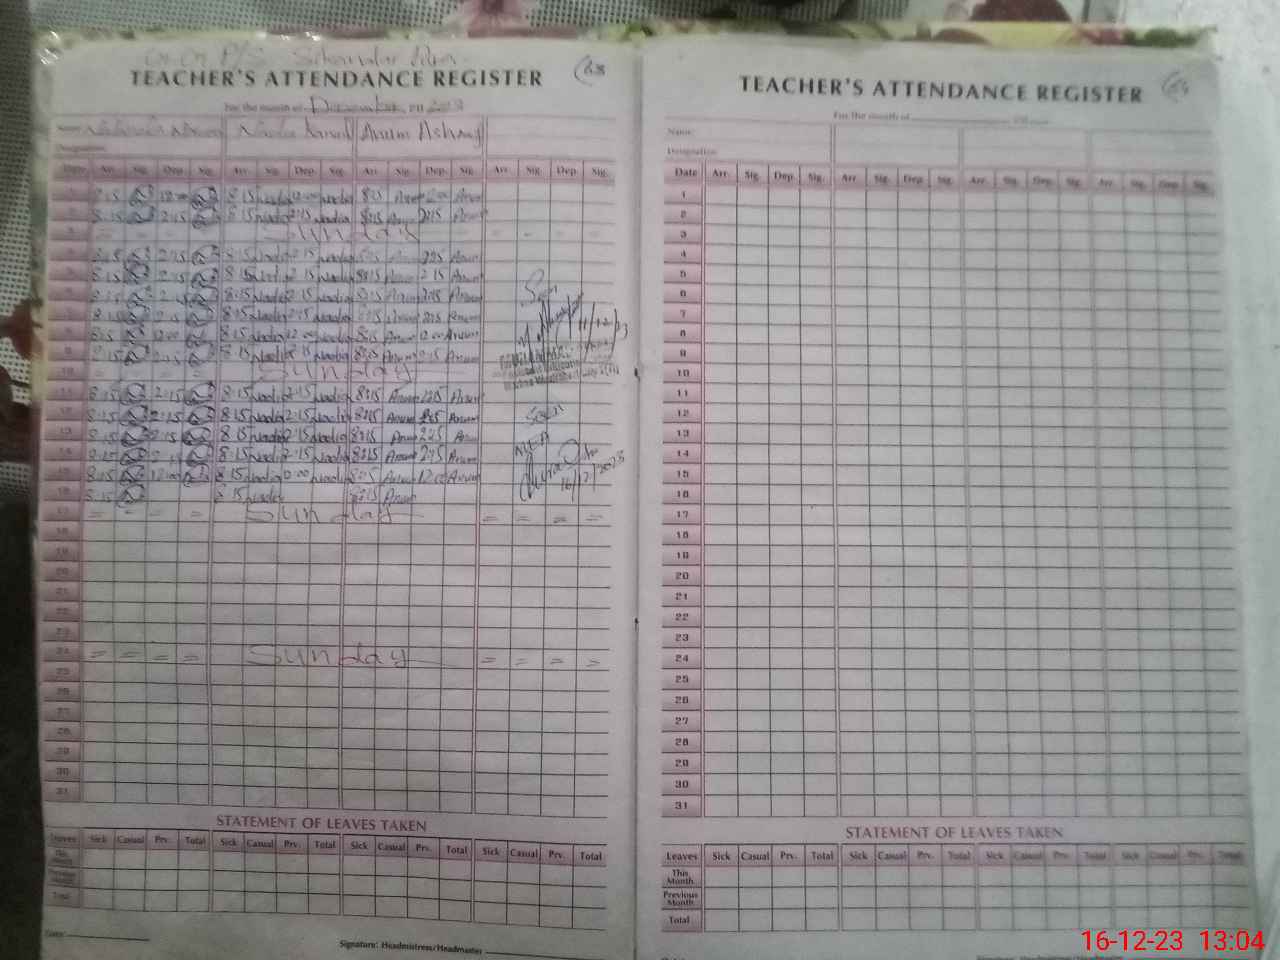 G.G P/S Sikandar Pur
TEACHER'S ATTENDANCE REGISTER
68
For the month of December 2023
Name Nadia Kanwal Anum Ashraf
Designation
Date Arr. Sig. Dep. Sig. Arr. Sig. Dep. Sig. Arr. Sig. Dep. Sig. Arr. Sig. Dep. Sig.
1 8:15 12:00 8:15 Nadia 12:00 Nadia 8:15 Anum 12:00 Anum
2 8:15 2:15 8:15 Nadia 2:15 Nadia 8:15 Anum 2:15 Anum
3 Sunday
4 8:15 2:15 8:15 Nadia 2:15 Nadia 8:15 Anum 2:15 Anum
5 8:15 2:15 8:15 Nadia 2:15 Nadia 8:15 Anum 2:15 Anum
6 8:15 2:15 8:15 Nadia 2:15 Nadia 8:15 Anum 2:15 Anum
7 8:15 2:15 8:15 Nadia 2:15 Nadia 8:15 Anum 2:15 Anum
8 8:15 12:00 8:15 Nadia 12:00 Nadia 8:15 Anum 12:00 Anum
9 8:15 2:15 8:15 Nadia 2:15 Nadia 8:15 Anum 2:15 Anum
10 Sunday
11 8:15 2:15 8:15 Nadia 2:15 Nadia 8:15 Anum 2:15 Anum
12 8:15 2:15 8:15 Nadia 2:15 Nadia 8:15 Anum 2:15 Anum
13 8:15 2:15 8:15 Nadia 2:15 Nadia 8:15 Anum 2:15 Anum
14 8:15 2:15 8:15 Nadia 2:15 Nadia 8:15 Anum 2:15 Anum
15 8:15 12:00 8:15 Nadia 12:00 Nadia 8:15 Anum 12:00 Anum
16 8:15 8:15 Nadia 8:15 Anum
17 = = = = Sunday = = = =
18
19
20
21
22
23
24 = = = = Sunday = = = =
25
26
27
28
29
30
31
Seen
11/12/23
Seen
MEA
16/12/2023
STATEMENT OF LEAVES TAKEN
Leaves Sick Casual Prv. Total Sick Casual Prv. Total Sick Casual Prv. Total Sick Casual Prv. Total
This Month
Previous Month
Total
Date:
Signature: Headmistress/Headmaster
TEACHER'S ATTENDANCE REGISTER
For the month of
Name:
Designation
Date Arr. Sig. Dep. Sig. Arr. Sig. Dep. Sig. Arr. Sig. Dep. Sig. Arr. Sig. Dep. Sig.
1
2
3
4
5
6
7
8
9
10
11
12
13
14
15
16
17
18
19
20
21
22
23
24
25
26
27
28
29
30
31
STATEMENT OF LEAVES TAKEN
Leaves Sick Casual Prv. Total Sick Casual Prv. Total Sick Casual Prv. Total Sick Casual Prv. Total
This Month
Previous Month
Total
Signature: Headmistress/Headmaster
16-12-23 13:04